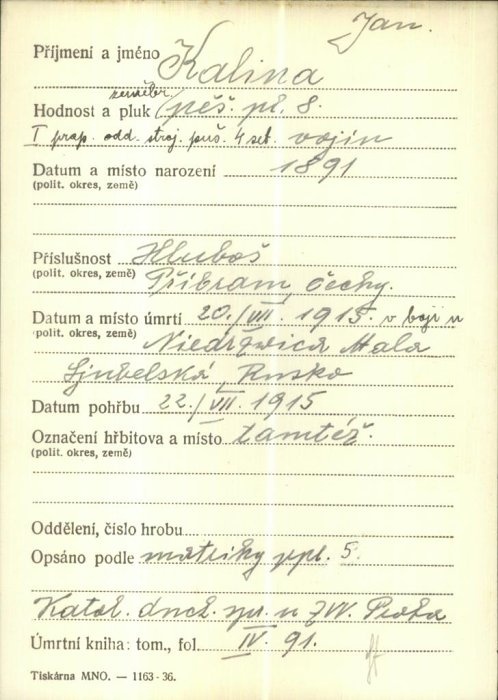 Jan.
Příjmení a jméno Kalina
zeměbr.
Hodnost a pluk pěš. pl. 8.
I prap. odd. stroj. puš. 4 set. vojín
Datum a místo narození 1891
(polit. okres, země)
Příslušnost Hluboš
(polit. okres, země) Příbram, Čechy.
Datum a místo úmrtí 20./VII. 1915. v boji u
(polit. okres, země) Niedržwica Mala
Ljubelská, Rusko
Datum pohřbu 22./VII. 1915
Označení hřbitova a místo tamtéž.
(polit. okres, země)
Oddělení, číslo hrobu
Opsáno podle matriky ppl. 5.
Katol. duch. spr. u ZVV. Praha
Úmrtní kniha: tom., fol. IV. 91.
Tiskárna MNO. — 1163-36.